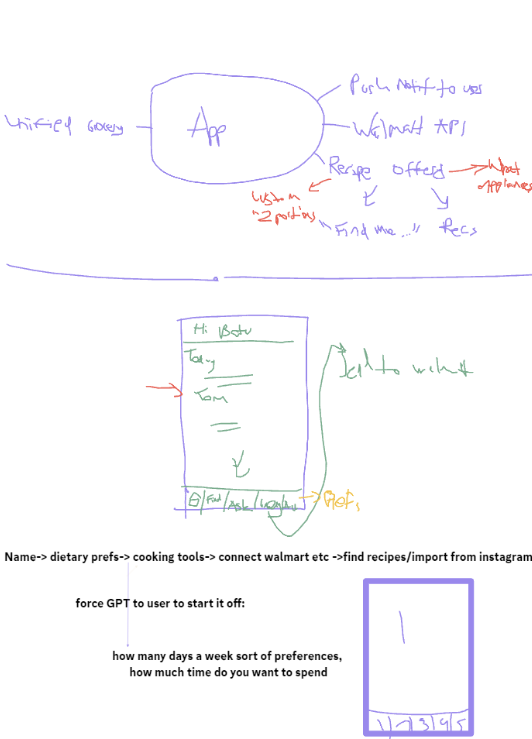 Push Notif to user
App
Walmart API
Unified Grocery
Recipe offers
What appliances
Custom
portions
"Find me..."
Recs
Hi Batu
Today
Tom
to walmart
Find/Ask/
Name-> dietary prefs-> cooking tools-> connect walmart etc ->find recipes/import from instagram
force GPT to user to start it off:
how many days a week sort of preferences,
how much time do you want to spend
1/2/3/4/5